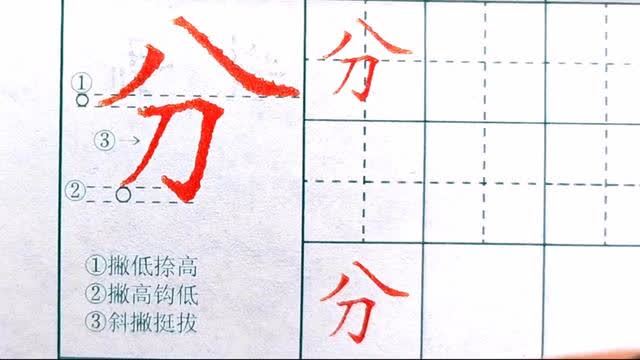 分
①
③
②
①撇低捺高
②撇高钩低
③斜撇挺拔
分
分